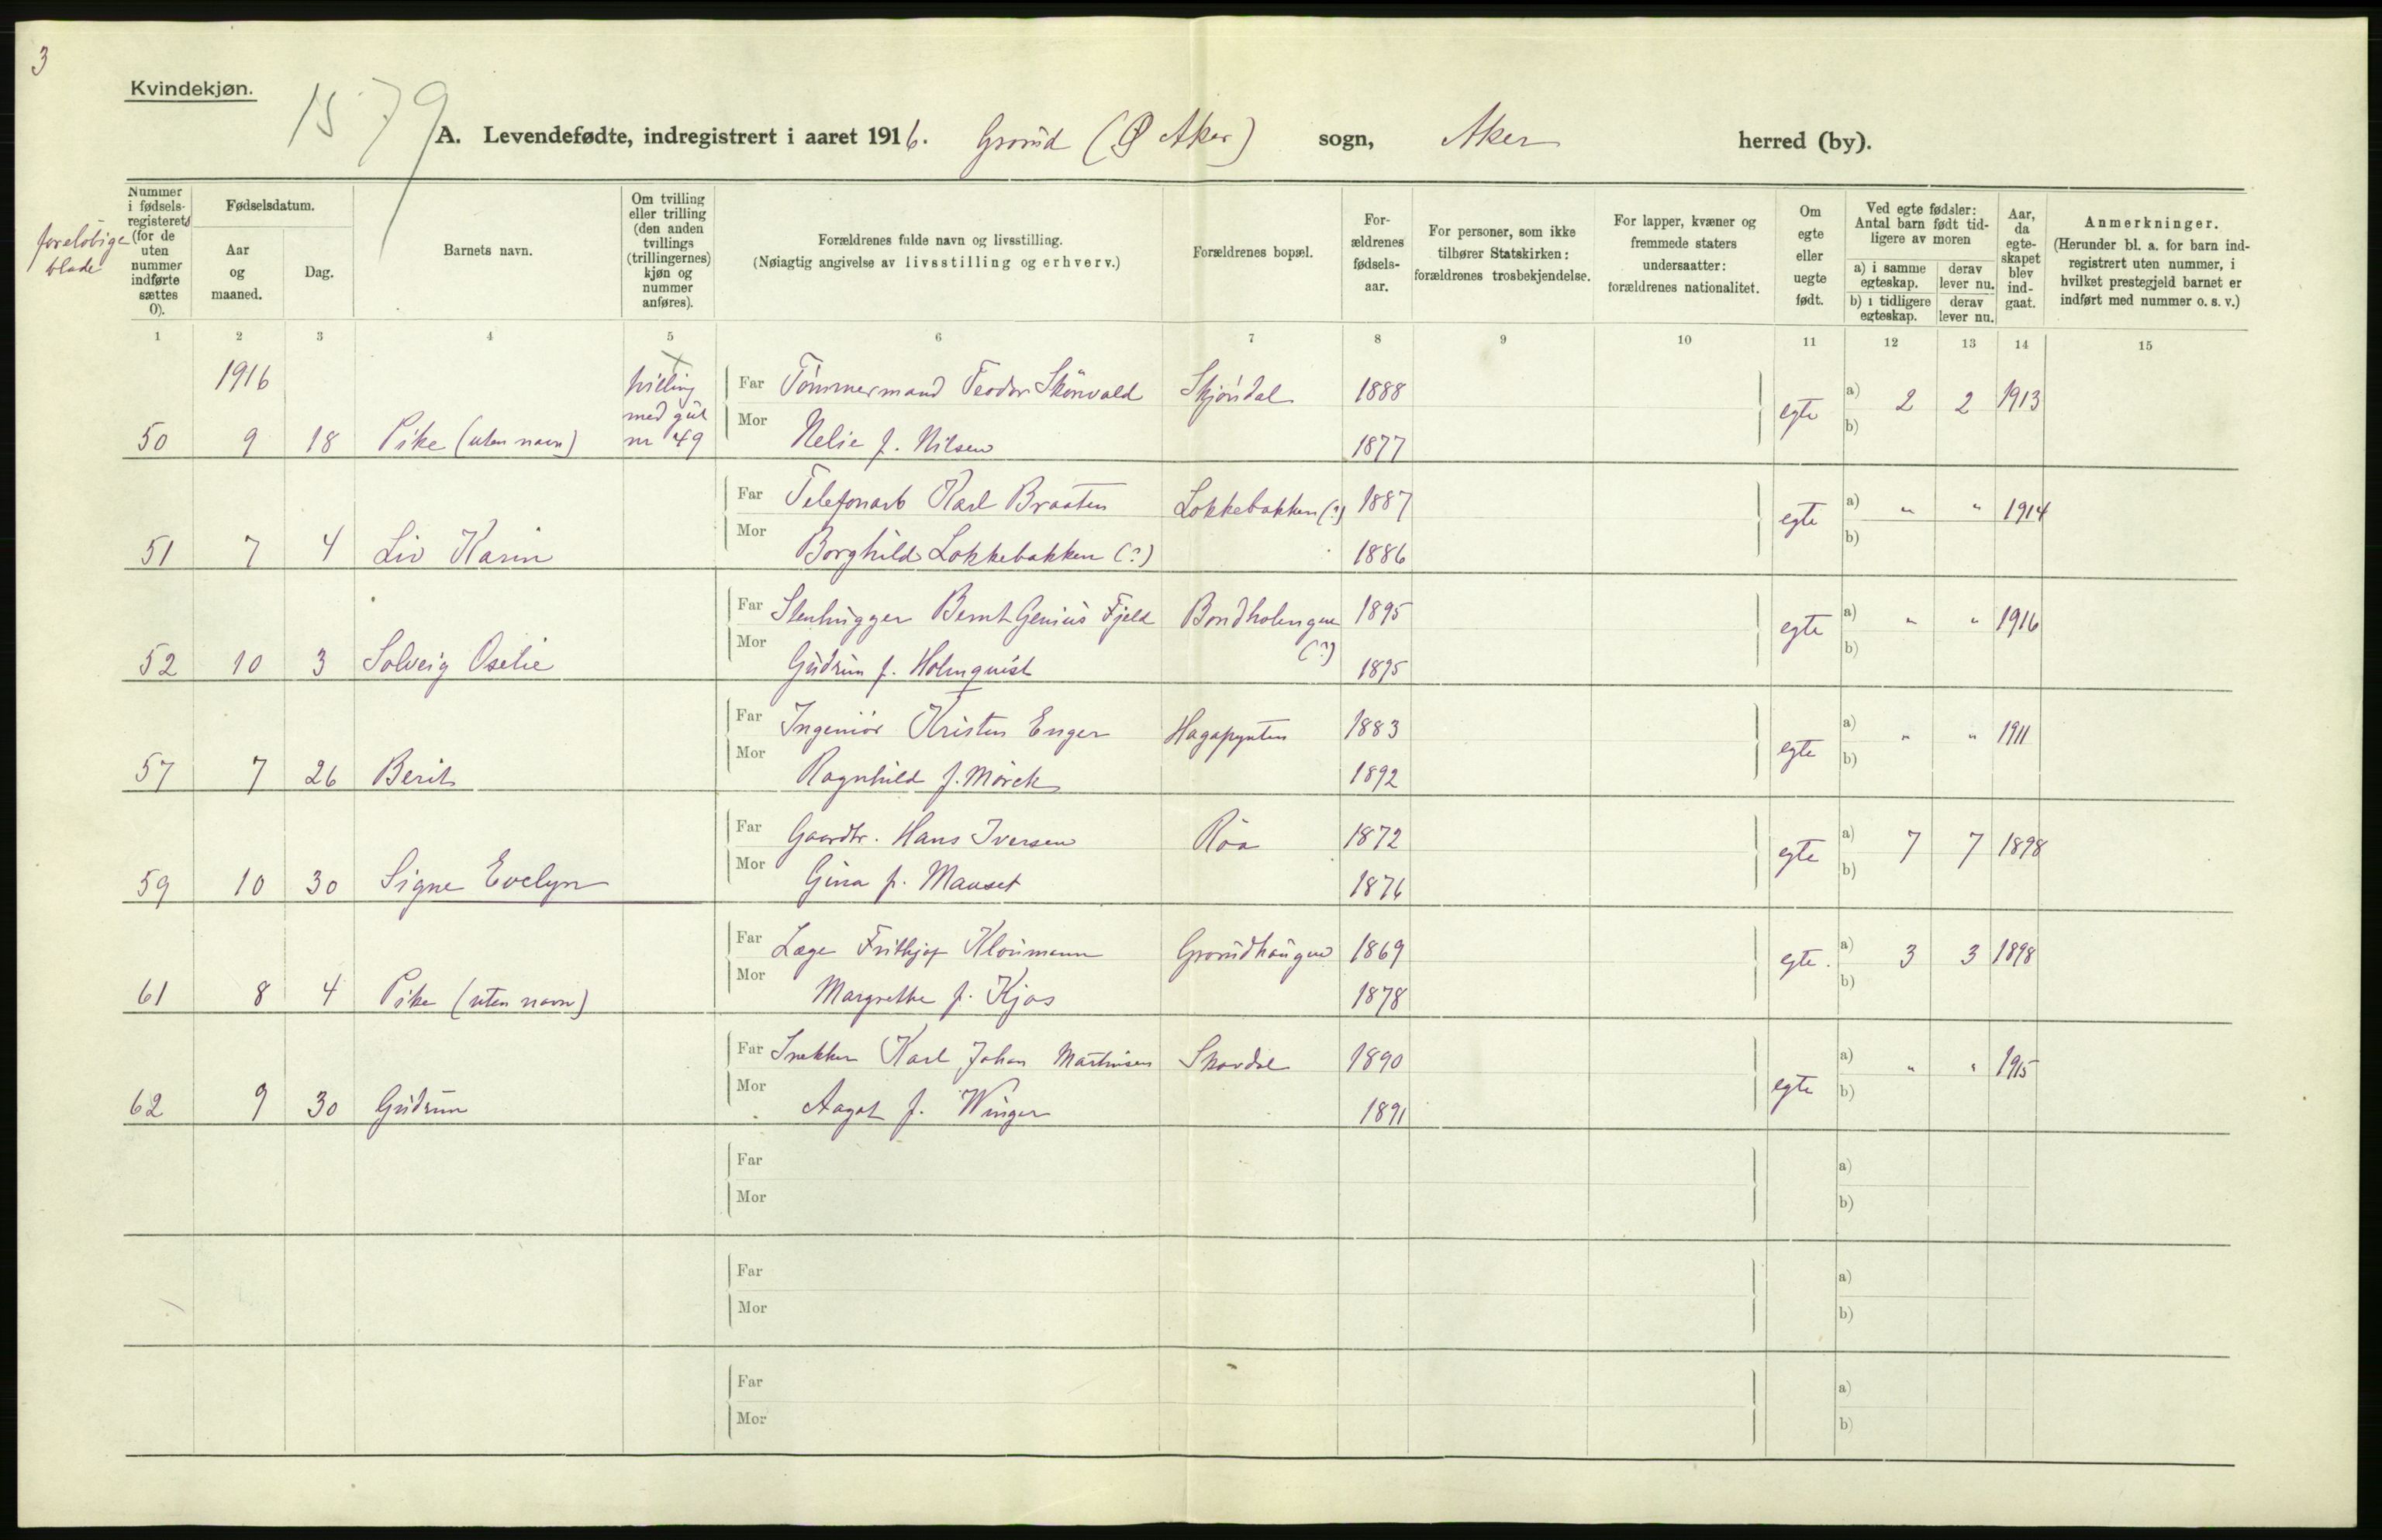 3
Kvindekjøn.
1579
A. Levendefødte, indregistrert i aaret 1916. Grorud (Ø Aker) sogn, Aker herred (by).
foreløbige blade
Nummer i fødselsregisterets (for de uten nummer indførte sættes 0).
Fødselsdatum.
Aar og maaned.
Dag.
Barnets navn.
Om tvilling eller trilling (den anden tvillings (trillingernes) kjøn og nummer anføres).
Forældrenes fulde navn og livsstilling.
(Nøiagtig angivelse av livsstilling og erhverv.)
Forældrenes bopæl.
Forældrenes fødselsaar.
For personer, som ikke tilhører Statskirken: forældrenes trosbekjendelse.
For lapper, kvæner og fremmede staters undersaatter: forældrenes nationalitet.
Om egte eller uegte født.
Ved egte fødsler: Antal barn født tidligere av moren
a) i samme egteskap. derav lever nu.
b) i tidligere egteskap. derav lever nu.
Aar, da egteskapet blev indgaat.
Anmerkninger.
(Herunder bl. a. for barn indregistrert uten nummer, i hvilket prestegjeld barnet er indført med nummer o. s. v.)
1 2 3 4 5 6 7 8 9 10 11 12 13 14 15
1916
50 9 18 Pike (uten navn) tvilling med gut nr 49
Far Tömmermand Teodor Skönvold Skjöndal 1888 egte a) 2 2 1913
Mor Nelie f. Nilsen 1877 b)
51 7 4 Liv Karin
Far Telefonarb Karl Braaten Lokkebakken (?) 1887 egte a) " " 1914
Mor Borghild Lokkebakken (?) 1886 b)
52 10 3 Solveig Oselie
Far Stenhugger Bernt Genius Fjeld Bondholengen (?) 1895 egte a) " " 1916
Mor Gudrun f. Holmquist 1895 b)
57 7 26 Berit
Far Ingeniör Kristen Enger Hagapynten 1883 egte a) " " 1911
Mor Ragnhild f. Mörck 1892 b)
59 10 30 Signe Evelyn
Far Gaardbr. Hans Iversen Röa 1872 egte a) 7 7 1898
Mor Gina f. Mauset 1876 b)
61 8 4 Pike (uten navn)
Far Læge Frithjof Kloumann Grorudhaugen 1869 egte. a) 3 3 1898
Mor Margrethe f. Kjos 1878 b)
62 9 30 Gudrun
Far Snekker Karl Johan Martinsen 1890 egte a) " " 1915
Mor Aagot f. Winger 1891 b)
Far a)
Mor b)
Far a)
Mor b)
Far a)
Mor b)